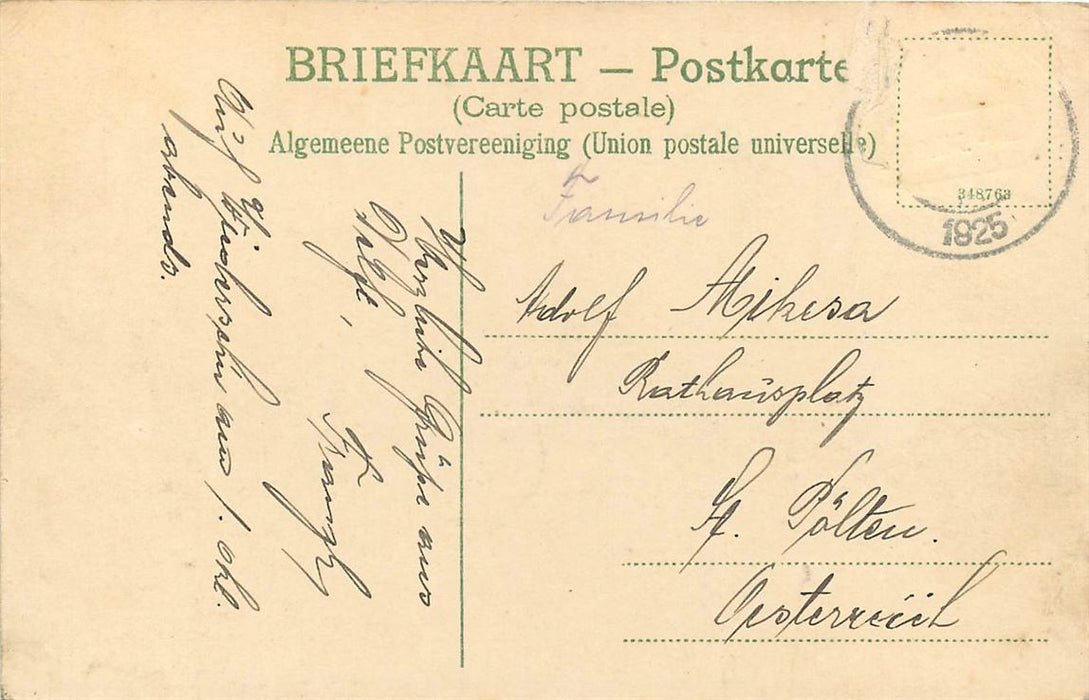 BRIEFKAART — Postkarte
(Carte postale)
Algemeene Postvereeniging (Union postale universelle)
348763
1925
Familie
Adolf Mikesa
Rathausplatz
St. Pölten.
Oesterreich
Herzliche Grüße aus
Franzl
Auf Wiedersehn am 1. Okt.
abends.